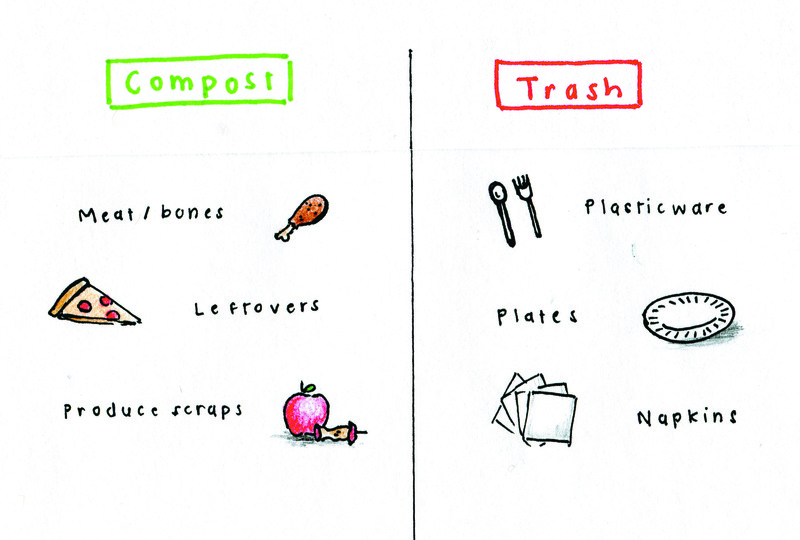 Compost
Meat / bones
Leftovers
Produce scraps
Trash
Plasticware
Plates
Napkins